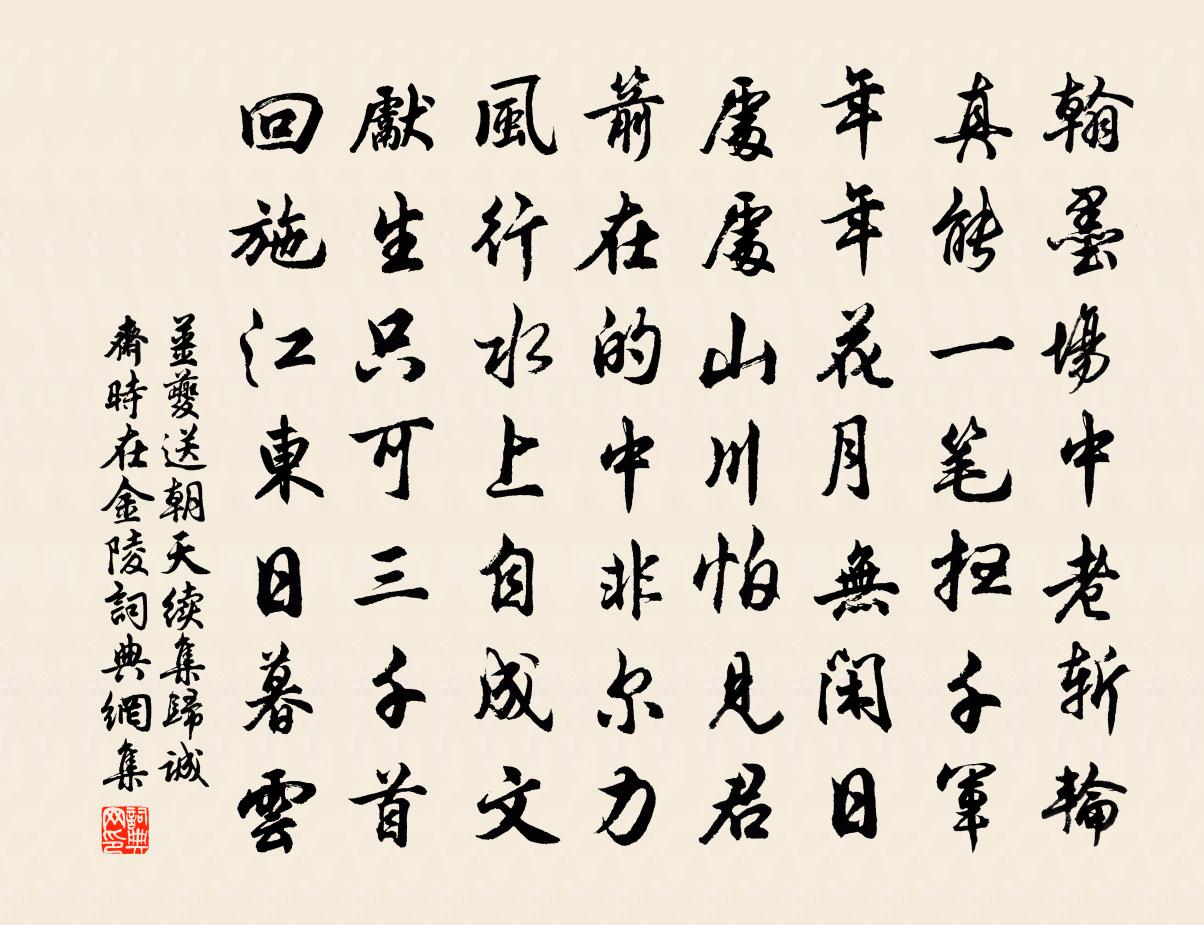 翰墨場中老斬輪
真能一笔掃千軍
年年花月無閑日
處處山川怕見君
箭在的中非尔力
風行水上自成文
獻生只可三千首
回施江東日暮雲
薑夔送朝天续集歸誠
齋時在金陵詞典網集
詞典网印